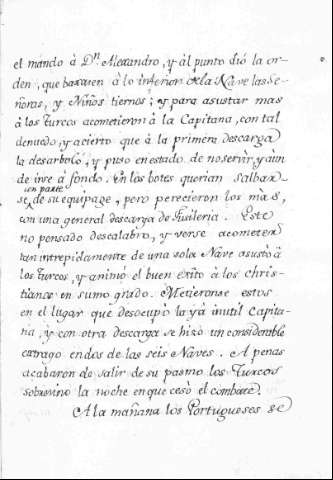 el mando à Dn. Alexandro, y al punto dió la or-
den, que baxaren à lo interior de la Nave las Se-
ñoras, y Niños tiernos; y para asustar mas
à los Turcos acometieron à la Capitana, con tal
denuedo, y acierto que à la primera descarga
la desarboló, y puso en estado de no servir y aùn
de irse à fondo. En los botes querian salbar-
se con parte de su equipage, pero perecieron los mas,
con una general descarga de Fusileria. Este
no pensado descalabro, y verse acometer
tan intrepidamente de una sola Nave asustò à
los Turcos, y animò el buen éxito à los chris-
tianos en sumo grado. Metieronse estos
en el lugar que desocupò la yà inutil Capita-
na, y con otra descarga se hizo un considerable
estrago en dos de las seis Naves. A penas
acabaron de salir de su pasmo los Turcos
sobrevino la noche en que cesò el combate.
A la mañana los Portugueses se